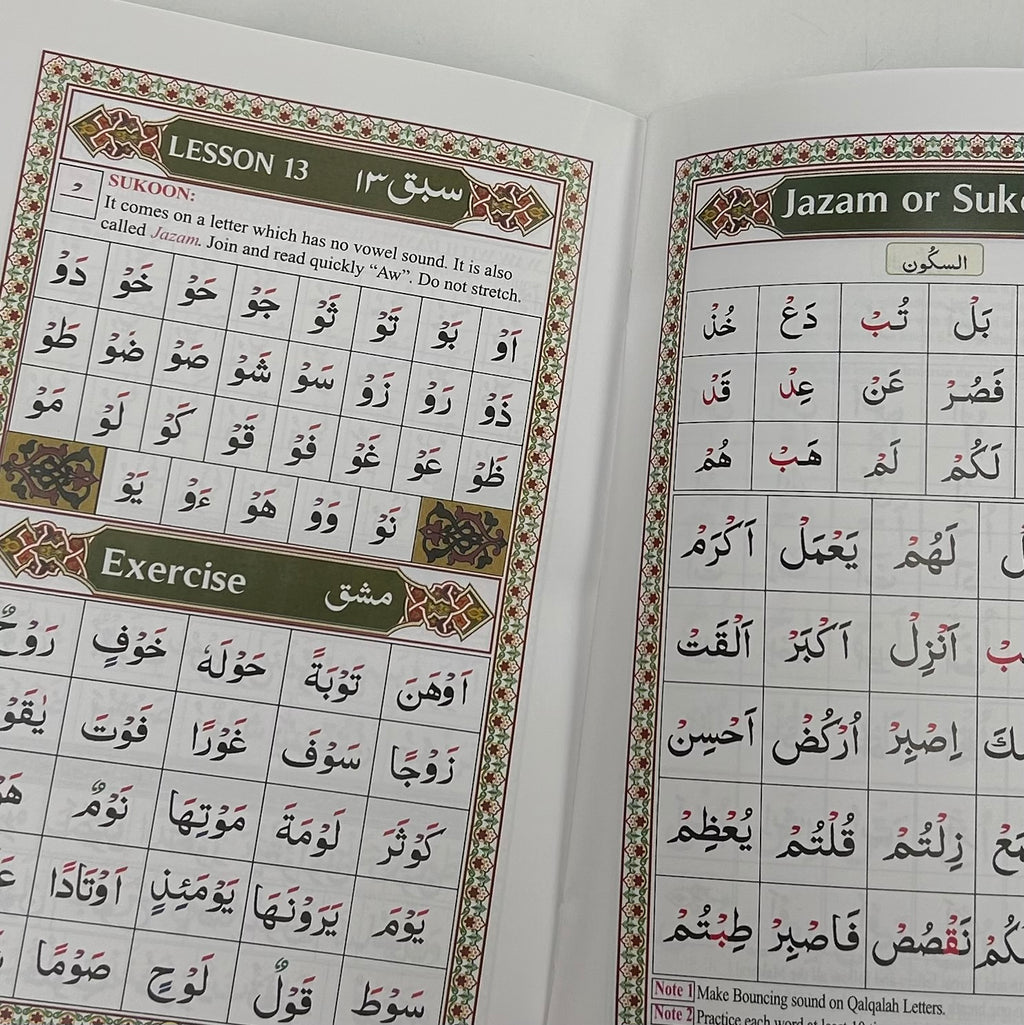 LESSON 13 سبق ١٣
SUKOON:
It comes on a letter which has no vowel sound. It is also
called Jazam. Join and read quickly “Aw”. Do not stretch.
اَوْ بَوْ تَوْ ثَوْ جَوْ حَوْ خَوْ دَوْ
ذَوْ رَوْ زَوْ سَوْ شَوْ صَوْ ضَوْ طَوْ
ظَوْ عَوْ غَوْ فَوْ قَوْ كَوْ لَوْ مَوْ
نَوْ وَوْ هَوْ ءَوْ يَوْ
Exercise مشق
اَوْهَنَ تَوْبَةً حَوْلَهٗ خَوْفٍ
زَوْجًا سَوْفَ غَوْرًا فَوْتَ
كَوْثَرَ لَوْمَةَ مَوْتِهَا نَوْمٌ
يَوْمَ يَرَوْنَهَا يَوْمَئِذٍ اَوْتَادًا
سَوْطَ قَوْلٌ لَوْحٍ صَوْمًا
Jazam or Suk
السكُون
بَلْ تُبْ دَعْ خُذْ
فَصُرْ عَنْ عِدْ قَدْ
لَكُمْ لَمْ هَبْ هُمْ
لَهُمْ يَعْمَلْ اَكْرَمْ
اَنْزِلْ اَكْبَرْ اَلْقَتْ
اِصْبِرْ اُرْكُضْ اَحْسِنْ
زِلْتُمْ قُلْتُمْ يُعْظِمْ
نَقْصُصْ فَاصْبِرْ طِبْتُمْ
Note 1 Make Bouncing sound on Qalqalah Letters.
Note 2 Practice each word at least